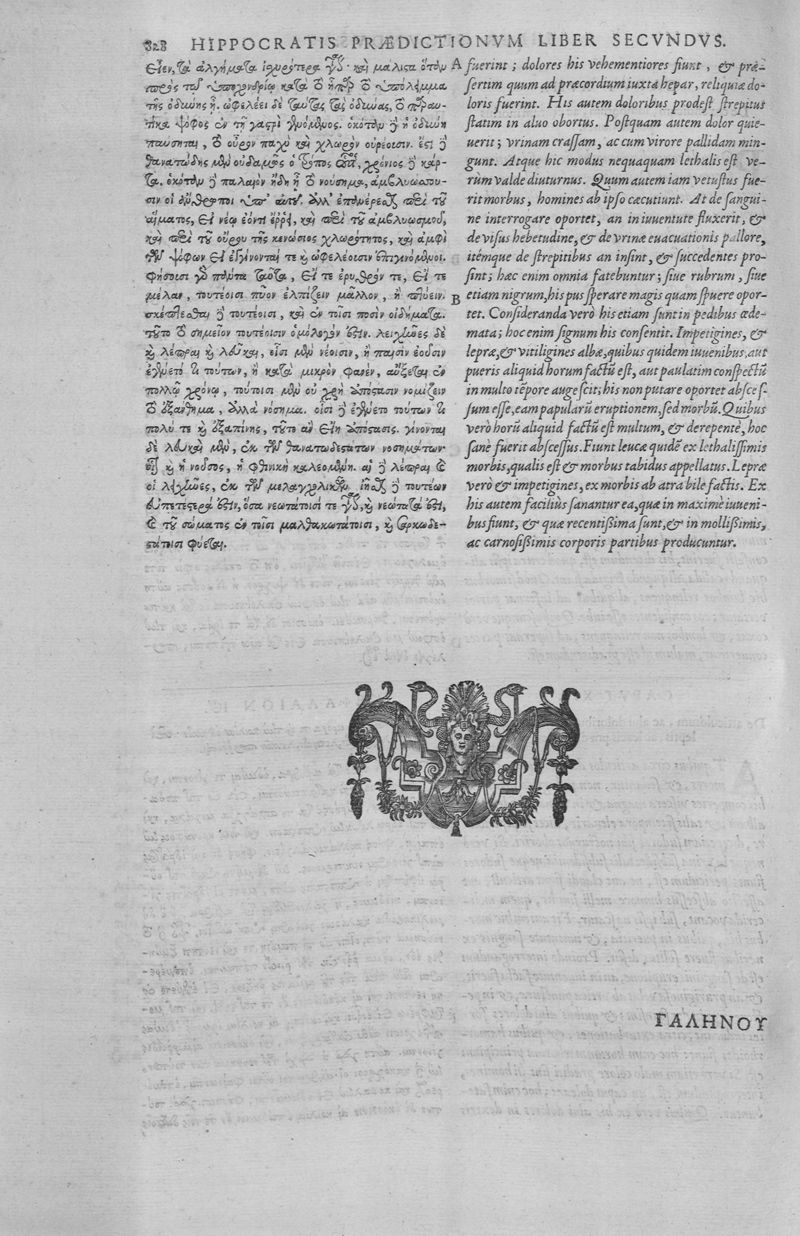 828 HIPPOCRATIS PRÆDICTIONVM LIBER SECVNDVS.
εἶεν, τὰ ἀλγήματα ἰσχυρότερα
πρὸς τῷ ὑποχονδρίῳ κατὰ τὸ ἧπαρ τὸ ὑπόλειμμα
τῆς ὀδύνης ᾖ. ὠφελέει δὲ ταύτας τὰς ὀδύνας, τὸ παραυ-
τίκα ψόφος ἐν τῇ γαστρὶ γενόμενος. ὁκόταν δὲ ἡ ὀδύνη
παύσηται, τὸ οὖρον παχὺ καὶ χλωρὸν οὐρέουσιν. ἔστι δὲ
θανατώδης μὲν οὐδαμῶς ὁ τρόπος, χρόνιος δὲ κάρ-
τα. ὁκόταν δὲ παλαιὸν ἤδη ᾖ τὸ νούσημα, ἀμβλυώσσου-
σιν οἱ ἄνθρωποι ὑπ' αὐτοῦ. ἀλλ' ἐπανέρεσθαι περὶ τοῦ
αἵματος, εἰ νέῳ ἐόντι ἐρρύη, καὶ περὶ τοῦ ἀμβλυωσμοῦ,
καὶ περὶ τοῦ οὔρου τῆς κενώσιος χλωρότητος, καὶ ἀμφὶ
τῶν ψόφων εἰ ἐγγίνονταί τε καὶ ὠφελέουσιν ἐπιγινόμενοι.
φήσουσι γὰρ πάντα ταῦτα, εἴ τε ἐρυθρόν τε, εἴ τε
μέλαν, τουτέοισι πῦον ἐλπίζειν μᾶλλον, ἢ πτύειν.
σκέπτεσθαι δὲ τουτέοισι, καὶ ἐν τοῖσι ποσὶν οἰδήματα.
τοῦτο τὸ σημεῖον τουτέοισιν ὁμόλογόν ἐστιν. λειχῆνες δὲ
καὶ λέπραι καὶ λεῦκαι, οἷσι μὲν νέοισιν, ἢ παισὶν ἐοῦσιν
ἐγένετό τι τούτων, ἢ κατὰ μικρὸν φανὲν, αὔξεται ἐν
πολλῷ χρόνῳ, τούτοισι μὲν οὐ χρὴ ἀπόστασιν νομίζειν
τὸ ἐξάνθημα, ἀλλὰ νόσημα. οἷσι δὲ ἐγένετο τούτων τι
πολύ τε καὶ ἐξαπίνης, τοῦτο ἂν εἴη ἀπόστασις. γίνονται
δὲ λεῦκαι μὲν, ἐκ τῶν θανατωδεστάτων νοσημάτων·
καὶ ἡ νοῦσος, ἡ φθινικὴ καλεομένη. αἱ δὲ λέπραι καὶ
οἱ λειχῆνες, ἐκ τῶν μελαγχολικῶν. ἰῆσθαι δὲ τουτέων
εὐπετέστερά ἐστιν, ὅσα νεωτάτοισί τε, καὶ νεώτατά ἐστι,
καὶ τοῦ σώματος ἐν τοῖσι μαλθακωτάτοισι, καὶ σαρκωδε-
στάτοισι φύεται.
A fuerint; dolores his vehementiores fiunt, & præ-
sertim quum ad præcordium iuxta hepar, reliquiæ do-
loris fuerint. His autem doloribus prodest strepitus
statim in aluo obortus. Postquam autem dolor quie-
uerit; vrinam crassam, ac cum virore pallidam min-
gunt. Atque hic modus nequaquam lethalis est, ve-
rùm valde diuturnus. Quum autem iam vetustus fue-
rit morbus, homines ab ipso cæcutiunt. At de sangui-
ne interrogare oportet, an in iuuentute fluxerit, &
de visus hebetudine, & de vrinæ euacuationis pallore,
itémque de strepitibus an insint, & succedentes pro-
sint; hæc enim omnia fatebuntur; siue rubrum, siue
B etiam nigrum, his pus sperare magis quam spuere opor-
tet. Consideranda verò his etiam sunt in pedibus œde-
mata; hoc enim signum his consentit. Impetigines, &
lepræ, & vitiligines albæ, quibus quidem iuuenibus, aut
pueris aliquid horum factũ est, aut paulatim conspectũ
in multo tẽpore augescit; his non putare oportet absces-
sum esse, eam papularũ eruptionem, sed morbũ. Quibus
verò horũ aliquid factũ est multum, & derepentè, hoc
sanè fuerit abscessus. Fiunt leucæ quidẽ ex lethalissimis
morbis, qualis est & morbus tabidus appellatus. Lepræ
verò & impetigines, ex morbis ab atra bile factis. Ex
his autem faciliùs sanantur ea, quæ in maxime iuueni-
bus fiunt, & quæ recentissima sunt, & in mollissimis,
ac carnosissimis corporis partibus producuntur.
ΓΑΛΗΝΟΥ